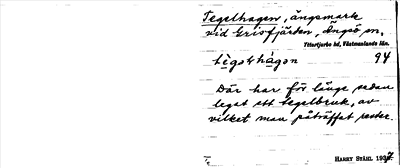 Tegelhagen, ängsmark
vid Grisfjärden, Ängsö sn.
Yttertjurbo hd, Västmanlands län.
tègəlhàgən 94
Där har för länge sedan
legat ett tegelbruk, av
vilket man påträffat rester.
HARRY STÅHL 1937.